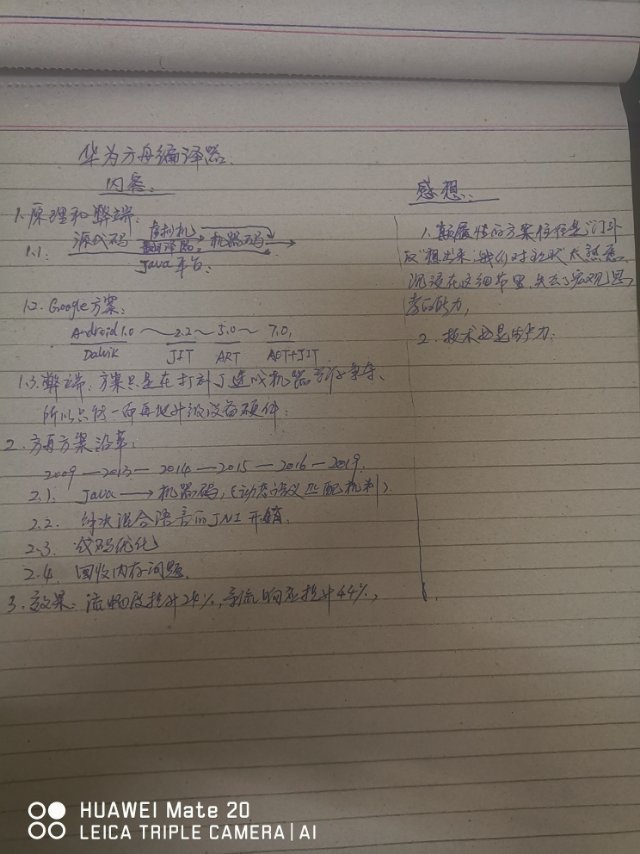 华为方舟编译器
内容:
1.原理和弊端:
1.1 源代码 虚拟机 翻译器 机器码
Java平台:
1.2. Google方案:
Android 1.0 ~ 2.2 ~ 5.0 ~ 7.0,
Dalvik JIT ART AOT+JIT
1.3.弊端:方案只是在打补丁造成机器
所以只能一而再地升级设备硬件;
2.方舟方案沿革:
2009 — 2013 — 2014 — 2015 — 2016 — 2019.
2.1. Java → 机器码,(动态语义匹配机制)
2.2. 解决混合语言的JNI开销.
2.3. 代码优化
2.4. 回收内存问题.
3.效果:流畅度提升24%,系统响应提升44%,
感想:
1.颠展性的方案往往是"门外
汉"想出来,我们对现状太熟悉
沉浸在这细节里,失去了宏观思
考的能力,
2.技术也是生产力;
HUAWEI Mate 20
LEICA TRIPLE CAMERA | AI